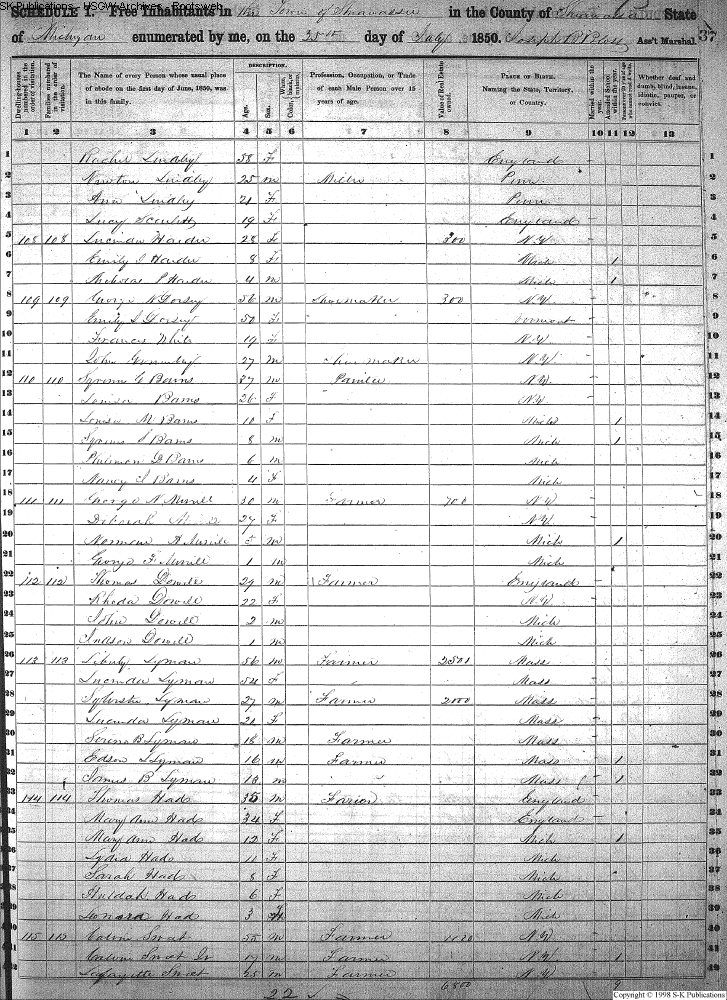 SK Publications - USGW Archives - Rootsweb
SCHEDULE I. Free Inhabitants in The Town of Shiawassee in the County of Shiawassee State
of Michigan enumerated by me, on the 25th day of July 1850. Joseph P. Ass't Marshal. 37
Dwelling-houses numbered in the order of visitation. Families numbered in the order of visitation. The Name of every Person whose usual place of abode on the first day of June, 1850, was in this family. DESCRIPTION. Age. Sex. Color, Profession, Occupation, or Trade of each Male Person over 15 years of age. Value of Real Estate owned. PLACE OF BIRTH. Naming the State, Territory, or Country. Married within the year. Attended School within the year. Whether deaf and dumb, blind, insane, idiotic, pauper, or convict.
1 2 3 4 5 6 7 8 9 10 11 12 13
1 Rachel Lindley 58 F England
2 Newton Lindley 25 m Miller Penn 2
3 Ann Lindley 21 F Penn 3
4 Lucy Scarlett 19 F England 4
5 108 108 Lucinda Harder 28 F 300 N.Y 5
6 Emily J Harder 8 F Mich 1 6
7 Nicholas P Harder 4 m Mich 1 7
8 109 109 George N Dorsey 56 m Shoemaker 300 N.Y 8
9 Emily S Dorsey 50 F Vermont 9
10 Frances White 19 F N.Y 10
11 John 27 m Shoemaker N.Y 11
12 110 110 G Barns 37 m Painter N.Y 12
13 Louisa Barns 26 F N.Y
14 Louisa M Barns 10 F Mich 1 14
15 S Barns 8 m Mich 1 15
16 Philemon D Barns 6 m Mich 16
17 Nancy J Barns 4 F Mich 17
18 111 111 George N Merrill 30 m Farmer 700 N.Y 18
19 Deborah 27 F N.Y 19
20 Norman A Merrill 5 m Mich 1 20
21 George F Merrill 1 m Mich 21
22 112 112 Thomas Dowell 29 m Farmer England 22
23 Rhoda Dowell 22 F N.Y 23
24 John Dowell 2 m Mich 24
25 Judson Dowell 1 m Mich 25
26 113 113 Liberty Lyman 56 m Farmer 2500 Mass 26
27 Lucinda Lyman 54 F Mass 27
28 Sylvester Lyman 27 m Farmer 2000 Mass 28
29 Lucinda Lyman 21 F Mass 29
30 B Lyman 18 m Farmer Mass 30
31 Edson L Lyman 16 m Farmer Mass 1 31
32 James B Lyman 13 m Mass 1 32
33 114 114 Thomas Hads 35 m England 33
34 Mary Ann Hads 34 F England 34
35 Mary Ann Hads 12 F Mich 1 35
36 Lydia Hads 11 F Mich 36
37 Sarah Hads 8 F Mich 37
38 Huldah Hads 6 F Mich 38
39 Leonard Had 3 Mich 39
40 115 115 Calvin 55 m Farmer N.Y 40
41 Calvin Jr 17 m Farmer N.Y 1 41
42 Lafayette 25 m Farmer N.Y 42
22 6800
Copyright © 1998 S-K Publications